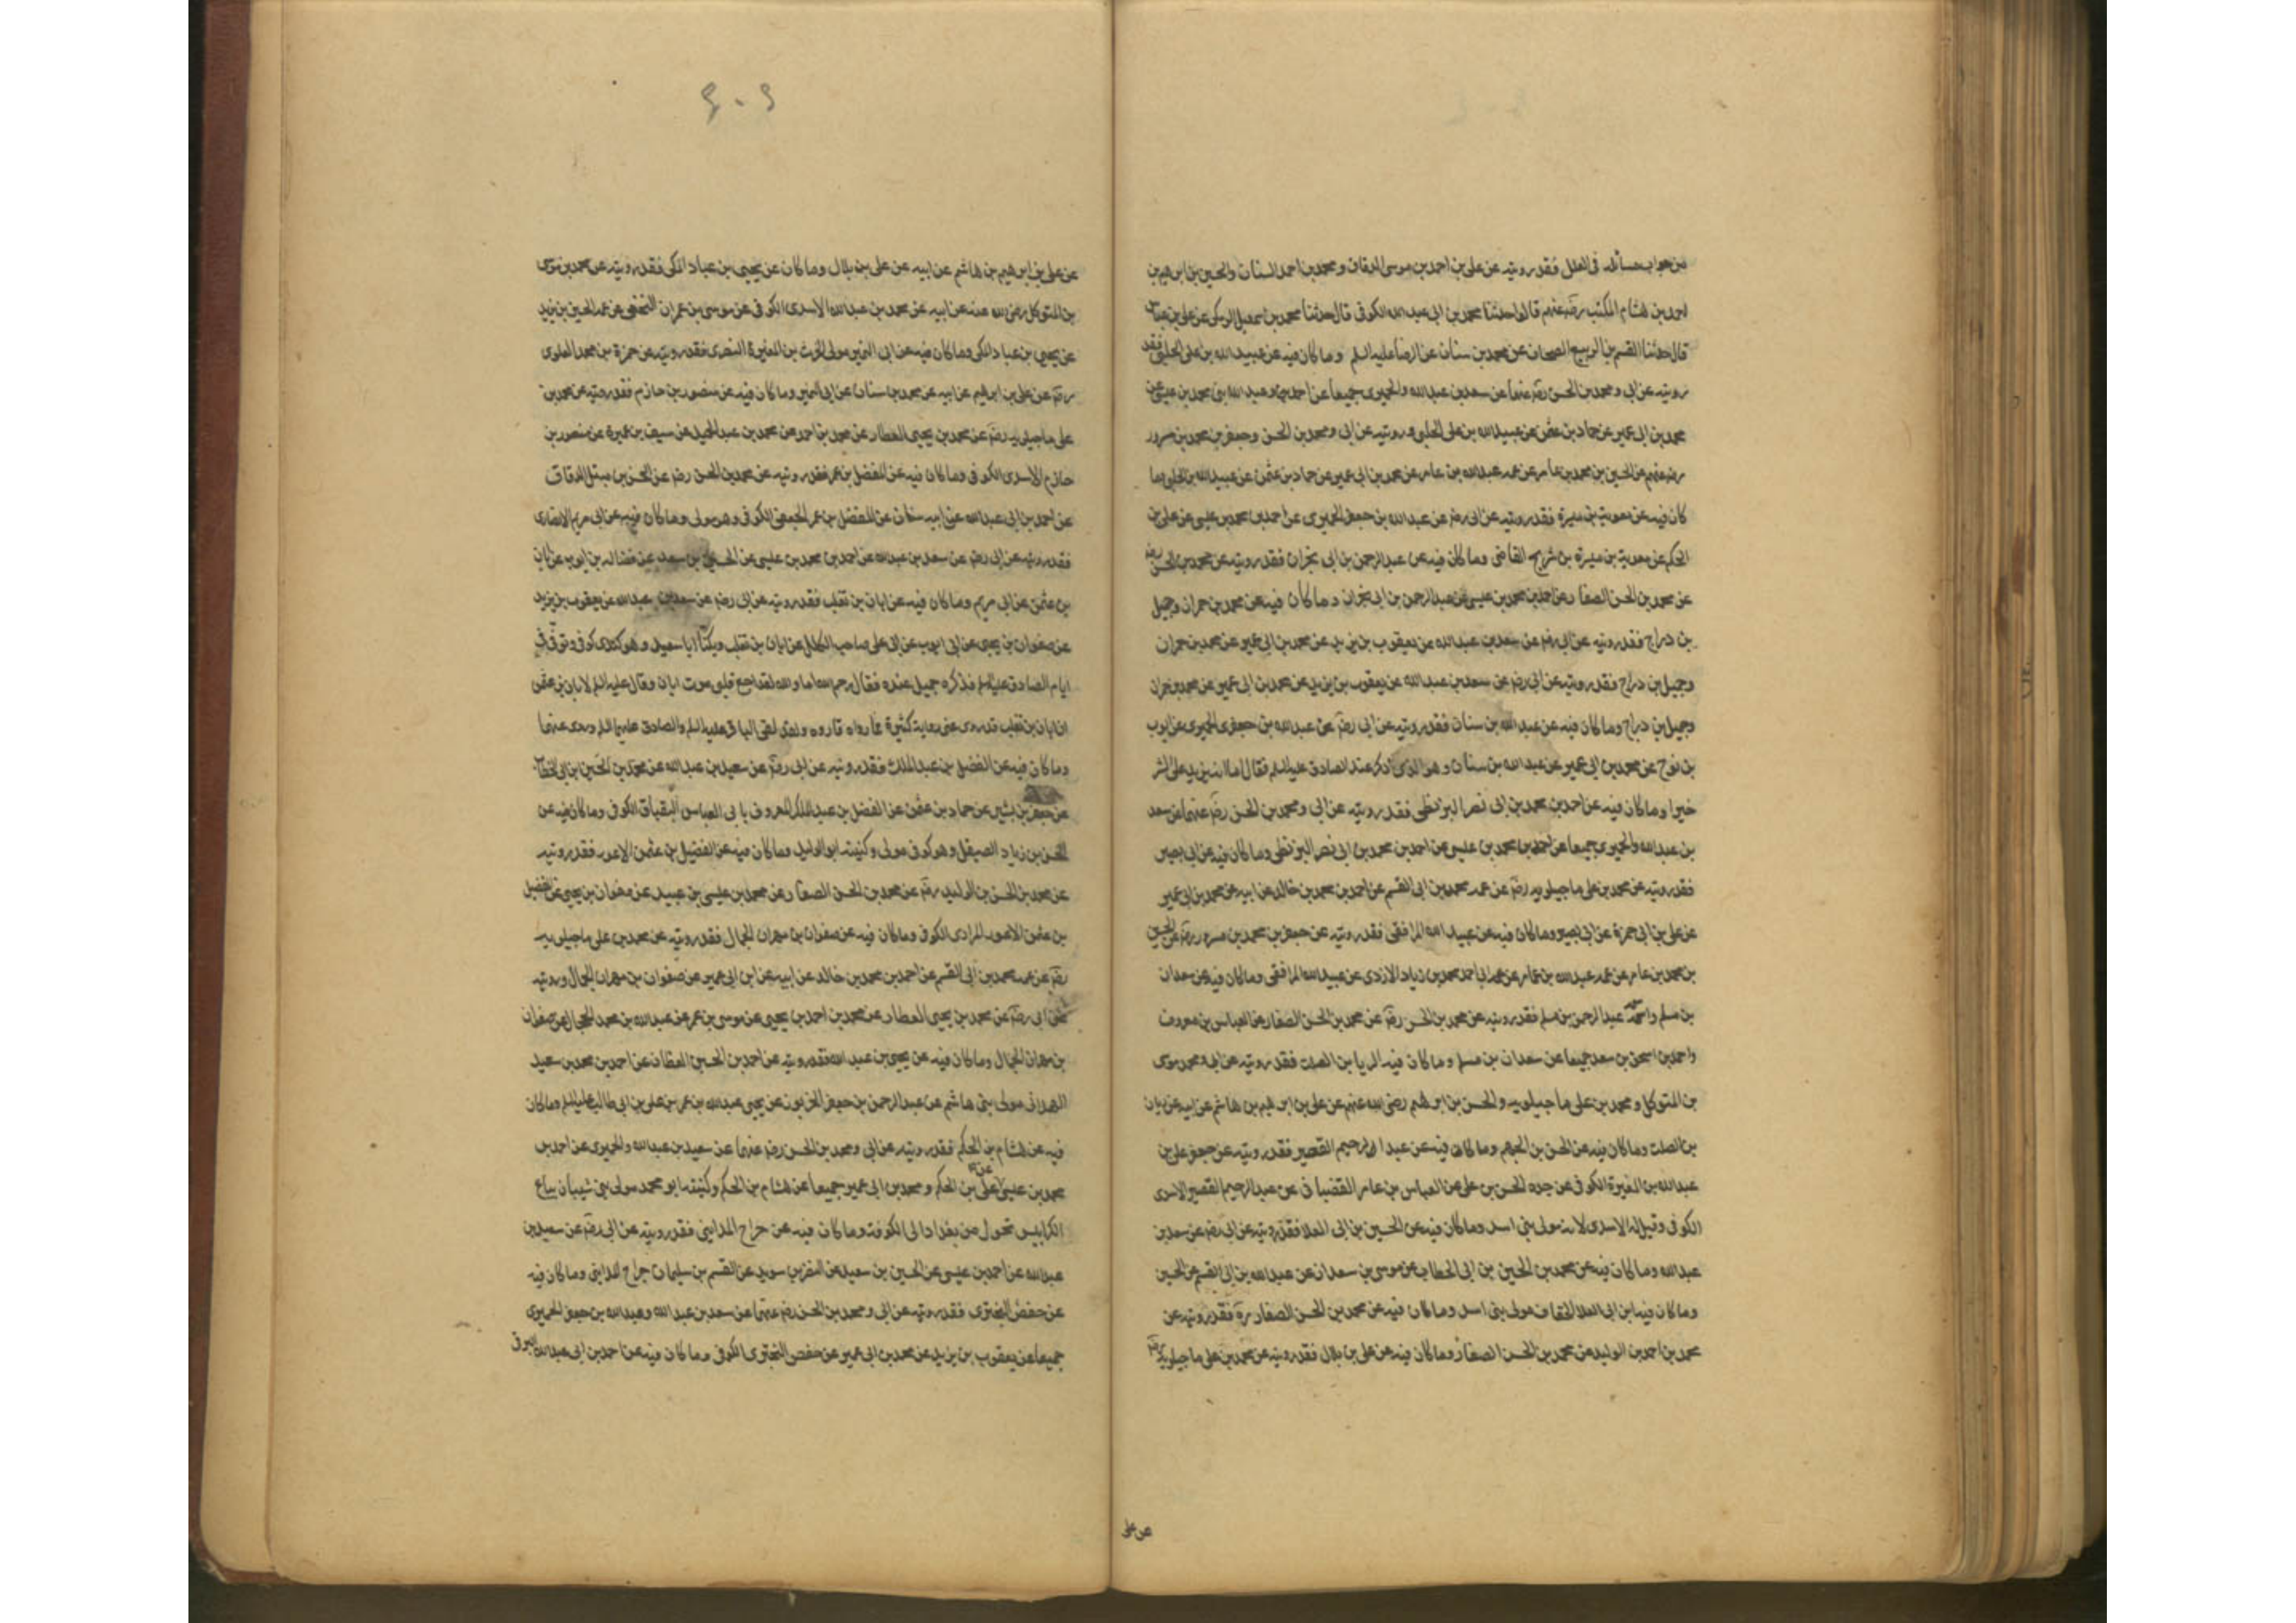 من جواب مسائله في العلل فقد رويته عن علي بن احمد بن موسى الدقاق ومحمد بن احمد السناني والحسين بن ابرهيم بن
احمد بن هشام المكتب رضي عنهم قالوا حدثنا محمد بن ابي عبد الله الكوفي قال حدثنا محمد بن اسمعيل البرمكي عن علي بن عباس
قال حدثنا القسم بن الربيع الصحاف عن محمد بن سنان عن الرضا عليه السلم وما كان فيه عن عبيد الله بن علي الحلبي فقد
رويته عن ابي ومحمد بن الحسن رضي عنهما عن سعد بن عبد الله والحميري جميعا عن احمد وعبد الله بني محمد بن عيسى عن
محمد بن ابي عمير عن حماد بن عثمن عن عبيد الله بن علي الحلبي ورويته عن ابي ومحمد بن الحسن وجعفر بن محمد بن مسرور
رضي عنهم عن الحسين بن محمد بن عامر عن عمه عبد الله بن عامر عن محمد بن ابي عمير عن حماد بن عثمن عن عبيد الله بن الحلبي وما
كان فيه عن معوية بن ميسرة فقد رويته عن ابي رضه عن عبد الله بن جعفر الحميري عن احمد بن محمد بن عيسى عن علي بن
الحكم عن معوية بن ميسرة بن شريح القاضي وما كان فيه عن عبد الرحمن بن ابي نجران فقد رويته عن محمد بن الحسن رضه
عن محمد بن الحسن الصفار عن احمد بن محمد بن عيسى عن عبد الرحمن بن ابي نجران وما كان فيه عن محمد بن حمران وجميل
بن دراج فقد رويته عن ابي رضه عن سعد بن عبد الله عن يعقوب بن يزيد عن محمد بن ابي عمير عن محمد بن حمران
وجميل بن دراج فقد رويته عن ابي رضه عن سعد بن عبد الله عن يعقوب بن يزيد عن محمد بن ابي عمير عن محمد بن حمران
وجميل بن دراج وما كان فيه عن عبد الله بن سنان فقد رويته عن ابي رضه عن عبد الله بن جعفر الحميري عن ايوب
بن نوح عن محمد بن ابي عمير عن عبد الله بن سنان وهو الذي ذكر عند الصادق عليه السلم فقال اما انه يزيد على الشر
خيرا وما كان فيه عن احمد بن محمد بن ابي نصر البزنطي فقد رويته عن ابي ومحمد بن الحسن رضه عنهما عن سعد
بن عبد الله والحميري جميعا عن احمد بن محمد بن عيسى عن احمد بن محمد بن ابي نصر البزنطي وما كان فيه عن ابي بصير
فقد رويته عن محمد بن علي ماجيلويه رضه عن عمه محمد بن ابي القسم عن احمد بن محمد بن خالد عن ابيه عن محمد بن ابي عمير
عن علي بن ابي حمزة عن ابي بصير وما كان فيه عن عبيد الله المرافقي فقد رويته عن جعفر بن محمد بن مسرور رضه عن الحسين
بن محمد بن عامر عن عمه عبد الله بن عامر عن ابي احمد محمد بن زياد الازدي عن عبيد الله المرافقي وما كان فيه عن سعدان
بن مسلم واسمه عبد الرحمن بن مسلم فقد رويته عن محمد بن الحسن رضه عن محمد بن الحسن الصفار عن العباس بن معروف
واحمد بن اسحق بن سعد جميعا عن سعدان بن مسلم وما كان فيه الريان بن الصلت فقد رويته عن ابي ومحمد موسى
بن المتوكل ومحمد بن علي ماجيلويه والحسن بن ابرهيم رضي الله عنهم عن علي بن ابرهيم بن هاشم عن ابيه عن ريان
بن الصلت وما كان فيه عن الحسن بن الجهم وما كان فيه عن عبد الرحيم القصير فقد رويته عن جعفر علي بن
عبد الله بن المغيرة الكوفي عن جده الحسن بن علي عن العباس بن عامر القضباني عن عبد الرحيم القصير الاسدي
الكوفي وقيل له الاسدي لانه مولى بني اسد وما كان فيه عن الحسين بن ابي العلا فقد رويته عن ابي رضه عن سعد بن
عبد الله وما كان فيه عن محمد بن الحسين بن ابي الخطاب عن موسى بن سعدان عن عبد الله بن ابي القسم عن الحسين
وما كان فيه ابن ابي العلا الخفاف مولى بني اسد وما كان فيه عن محمد بن الحسن الصفار ره فقد رويته عن
محمد بن احمد بن الوليد عن محمد بن الحسن الصفار وما كان فيه عن علي بن بلال فقد رويته عن محمد بن علي ماجيلويه رضه
عن علي
٤٠٩
عن علي بن ابرهيم بن هاشم عن ابيه عن علي بن بلال وما كان عن يحيى بن عباد المكي فقد رويته عن محمد بن موسى
بن المتوكل رضي الله عنه عن ابيه عن محمد بن عبد الله الاسدي الكوفي عن موسى بن عمران النخعي عن عمه الحسين بن يزيد
عن يحيى بن عباد المكي وما كان فيه عن ابي النمير مولى الحرث بن المغيرة النصري فقد رويته عن حمزة بن محمد العلوي
رضه عن علي بن ابرهيم عن ابيه عن محمد بن سنان عن ابي النمير وما كان فيه عن منصور بن حازم فقد رويته عن محمد بن
علي ماجيلويه رضه عن محمد بن يحيى العطار عن محمد بن احمد عن محمد بن عبد الحميد عن سيف بن عميرة عن منصور بن
حازم الاسدي الكوفي وما كان فيه عن المفضل بن عمر فقد رويته عن محمد بن الحسن رضه عن الحسن بن متيل الدقاق
عن احمد بن ابي عبد الله عن ابيه سنان عن المفضل بن عمر الجعفي الكوفي وهو مولى وما كان فيه عن ابي مريم الانصاري
فقد رويته عن ابي رضه عن سعد بن عبد الله عن احمد بن محمد بن عيسى عن الحسين بن سعيد عن فضاله بن ايوب عن ابان
بن عثمن عن ابي مريم وما كان فيه عن ابان بن تغلب فقد رويته عن ابي رضه عن سعد بن عبد الله عن يعقوب بن يزيد
عن صفوان بن يحيى عن ابي ايوب عن ابي علي صاحب الكلل عن ابان بن تغلب ويكنى ابا سعيد وهو كندي كوفي وتوفي في
ايام الصادق عليه السلم فذكره جميل عنده فقال رحمه الله اما والله لقد اوجع قلبي موت ابان وقال عليه السلم لابان بن عثمن
ان ابان بن تغلب قد روى عني رواية كثيرة فما رواه فاروه ولقد لقي الباقر عليه السلم والصادق عليهما السلم وروى عنهما
وما كان فيه عن الفضل بن عبد الملك فقد رويته عن ابي رضه عن سعيد بن عبد الله عن محمد بن الحسين بن ابي الخطاب
عن جعفر بن بشير عن حماد بن عثمن عن الفضل بن عبد الملك المعروف بابي العباس البقباق الكوفي وما كان فيه عن
الحسن بن زياد الصيقل وهو كوفي مولى وكنيته ابو الوليد وما كان فيه عن الفضيل بن عثمن الاعور فقد رويته
عن محمد بن الحسن بن الوليد رضه عن محمد بن الحسن الصفار عن محمد بن عيسى بن عبيد عن صفوان بن يحيى عن فضيل
بن عثمن الاعور المرادي الكوفي وما كان فيه عن صفوان بن مهران الجمال فقد رويته عن محمد بن علي ماجيلويه
رضه عن عمه محمد بن ابي القسم عن احمد بن محمد بن خالد عن ابيه عن ابن ابي عمير عن صفوان بن مهران الجمال ورويته
عن ابي رضه عن محمد بن يحيى العطار عن محمد بن احمد بن يحيى عن موسى بن عمر عن عبد الله بن محمد الحجال عن صفوان
بن مهران الجمال وما كان فيه عن يحيى بن عبد الله فقد رويته عن احمد بن الحسين القطان عن احمد بن محمد بن سعيد
الهمداني مولى بني هاشم عن عبد الرحمن بن جعفر الحريري عن يحيى عبد الله بن عمر بن علي بن ابي طالب عليه السلم وما كان
فيه عن هشام بن الحكم فقد رويته عن ابي ومحمد بن الحسن رضه عنهما عن سعيد بن عبد الله والحميري عن احمد بن
محمد بن عيسى عن علي بن الحكم ومحمد بن ابي عمير جميعا عن هشام بن الحكم وكنيته ابو محمد مولى بني شيبان بياع
الكرابيس تحول من بغداد الى الكوفة وما كان فيه عن جراح المدايني فقد رويته عن ابي رضه عن سعيد بن
عبد الله عن احمد بن عيسى عن الحسين بن سعيد عن النضر بن سويد عن القسم بن سليمان جراح المدايني وما كان فيه
عن حفص البختري فقد رويته عن ابي ومحمد بن الحسن رضه عنهما عن سعد بن عبد الله وعبد الله بن جعفر الحميري
جميعا عن يعقوب بن يزيد عن محمد بن ابي عمير عن حفص البختري الكوفي وما كان فيه عن احمد بن ابي عبد الله البرقي